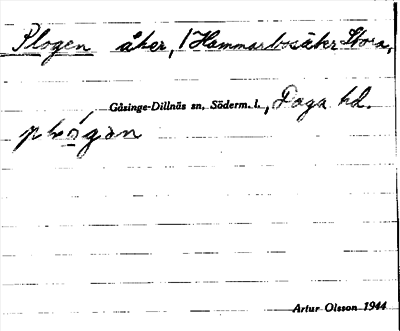 Plogen åker, Hammarbosäkr Stora,
Gåsinge-Dillnäs sn, Söderm. l., Daga hd.
plógan
Artur Olsson 1944